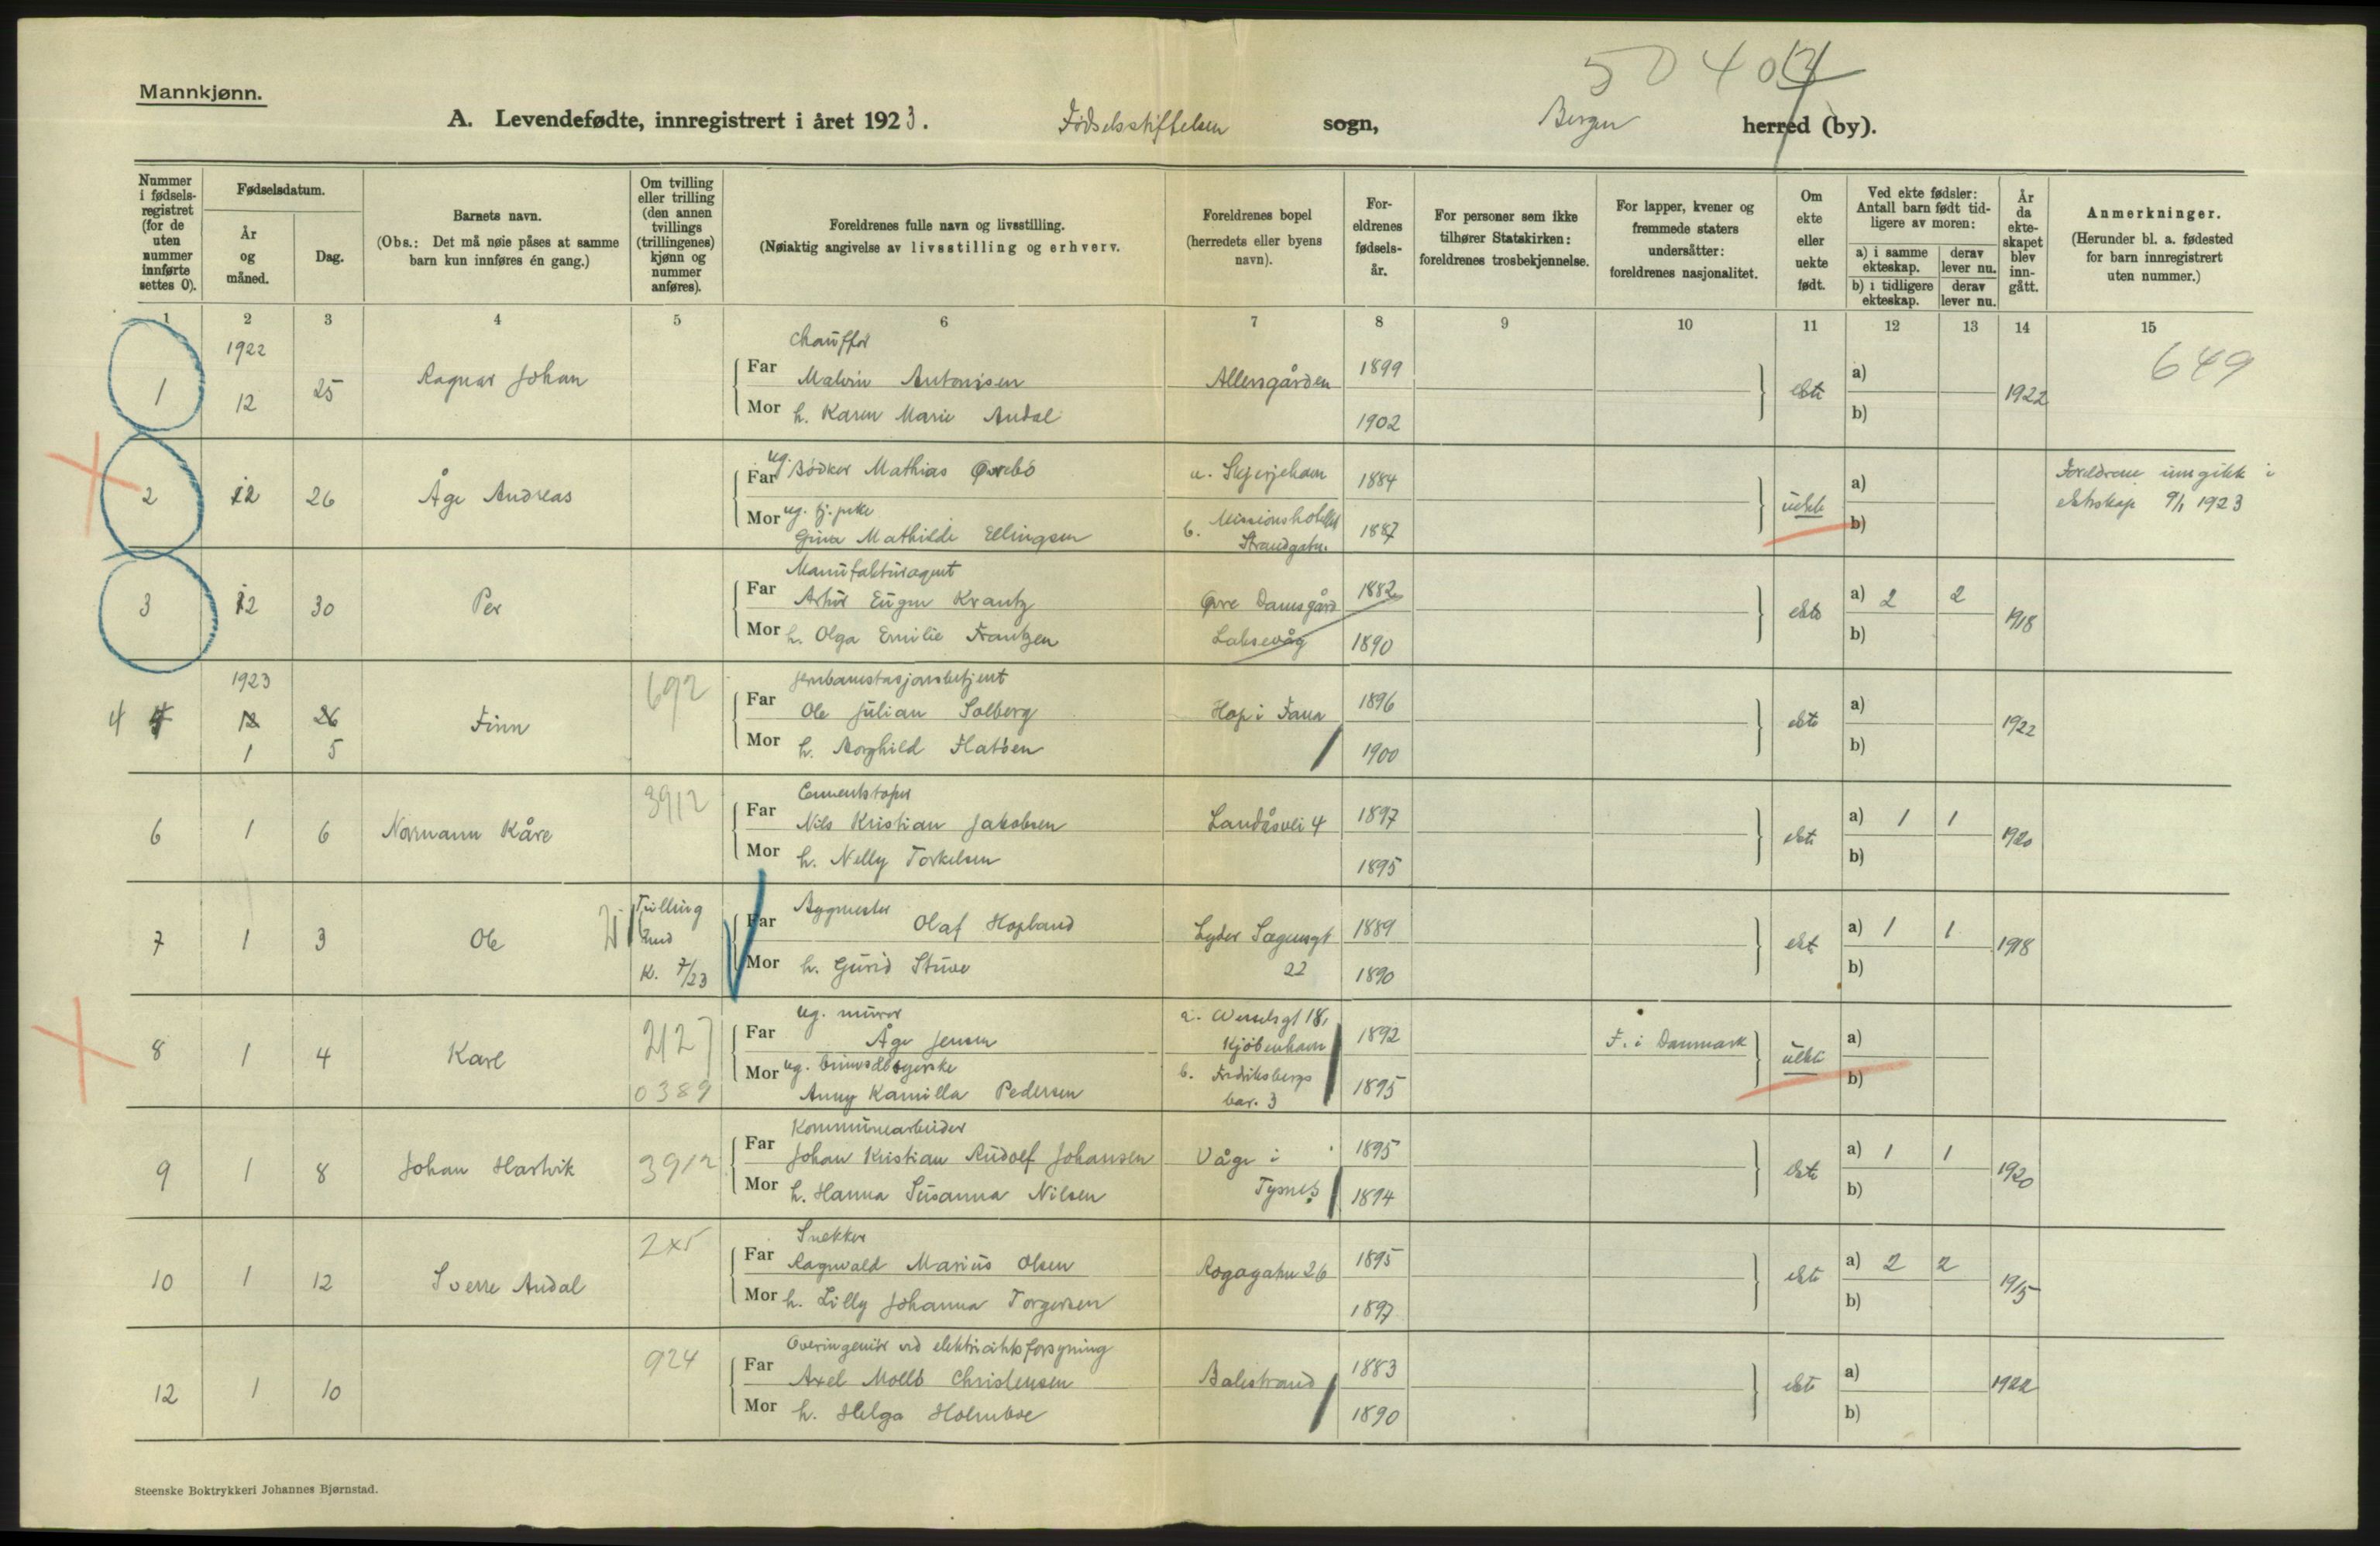 50404
Mannkjønn.
A. Levendefødte, innregistrert i året 1923. Fødselsstiftelsen sogn, Bergen herred (by).
Nummer i fødsels-registret (for de uten nummer innførte settes 0).
Fødselsdatum.
År og måned.
Dag.
Barnets navn.
(Obs.: Det må nøie påses at samme barn kun innføres én gang.)
Om tvilling eller trilling (den annen tvillings (trillingenes) kjønn og nummer anføres).
Foreldrenes fulle navn og livsstilling.
(Nøiaktig angivelse av livsstilling og erhverv.
Foreldrenes bopel (herredets eller byens navn).
For-eldrenes fødsels-år.
For personer som ikke tilhører Statskirken: foreldrenes trosbekjennelse.
For lapper, kvener og fremmede staters undersåtter: foreldrenes nasjonalitet.
Om ekte eller uekte født.
Ved ekte fødsler: Antall barn født tid-ligere av moren:
a) i samme ekteskap. derav lever nu.
b) i tidligere ekteskap. derav lever nu.
År da ekte-skapet blev inn-gått.
Anmerkninger.
(Herunder bl. a. fødested for barn innregistrert uten nummer.)
1 2 3 4 5 6 7 8 9 10 11 12 13 14 15
1922 Chauffør 649
1 12 25 Ragnar Johan Far Malvin Antonisen Allersgården 1899 ekte a) 1922
Mor h. Karen Marie Andal 1902 b)
2 12 26 Åge Andreas Far ug. Bödker Mathias Øvrebö a. Skjerjehavn 1884 uekte a) Foreldrene inngikk i
ekteskap 9/1 1923
Mor ug. tj.pike
Gina Mathilde Ellingsen b. Missionshotellet Strandgaten. 1887 b)
Manufakturagent
3 12 30 Per Far Artur Eugen Krantz Øvre Damsgård 1882 ekte a) 2 2 1918
Mor h. Olga Emilie Frantzen Laksevåg 1890 b)
1923 692 Jernbanestasjonsbetjent
4 12 26 Finn Far Ole Julian Solberg Hop i Fana 1896 ekte a) 1922
1 5 Mor h. Borghild Flatöen 1900 b)
3912 Cementstøper
6 1 6 Normann Kåre Far Nils Kristian Jakobsen Landåsvei 4 1897 ekte a) 1 1 1920
Mor h. Nelly Torkelsen 1895 b)
Tvilling Byggmester
7 1 3 Ole med Far Olaf Hopland Lyder Sagensgt 1889 ekte a) 1 1 1918
K. 7/23 Mor h. Gurid Stuve 22 1890 b)
ug. murer a. Wesselsgt 18,
8 1 4 Karl 2127 Far Åge Jensen Kjöbenhavn 1892 F. i Danmark uekte a)
0389 Mor ug.
Anny Kamilla Pedersen b. Fredriksbergs bar. 3 1895 b)
Kommunearbeider
9 1 8 Johan Hartvik 3912 Far Johan Kristian Rudolf Johansen Våge i 1895 ekte a) 1 1 1920
Mor h. Hanna Susanna Nilsen Tysnes 1894 b)
Snekker
10 1 12 Sverre Andal Far Ragnvald Marius Olsen Rogagaten 26 1895 ekte a) 2 2 1915
Mor h. Lilly Johanna Torgersen 1897 b)
Overingeniör ved elektricitetsforsyning
12 1 10 924 Far Axel Christensen Balestrand 1883 ekte a) 1922
Mor h. Helga Holmboe 1890 b)
Steenske Boktrykkeri Johannes Bjørnstad.